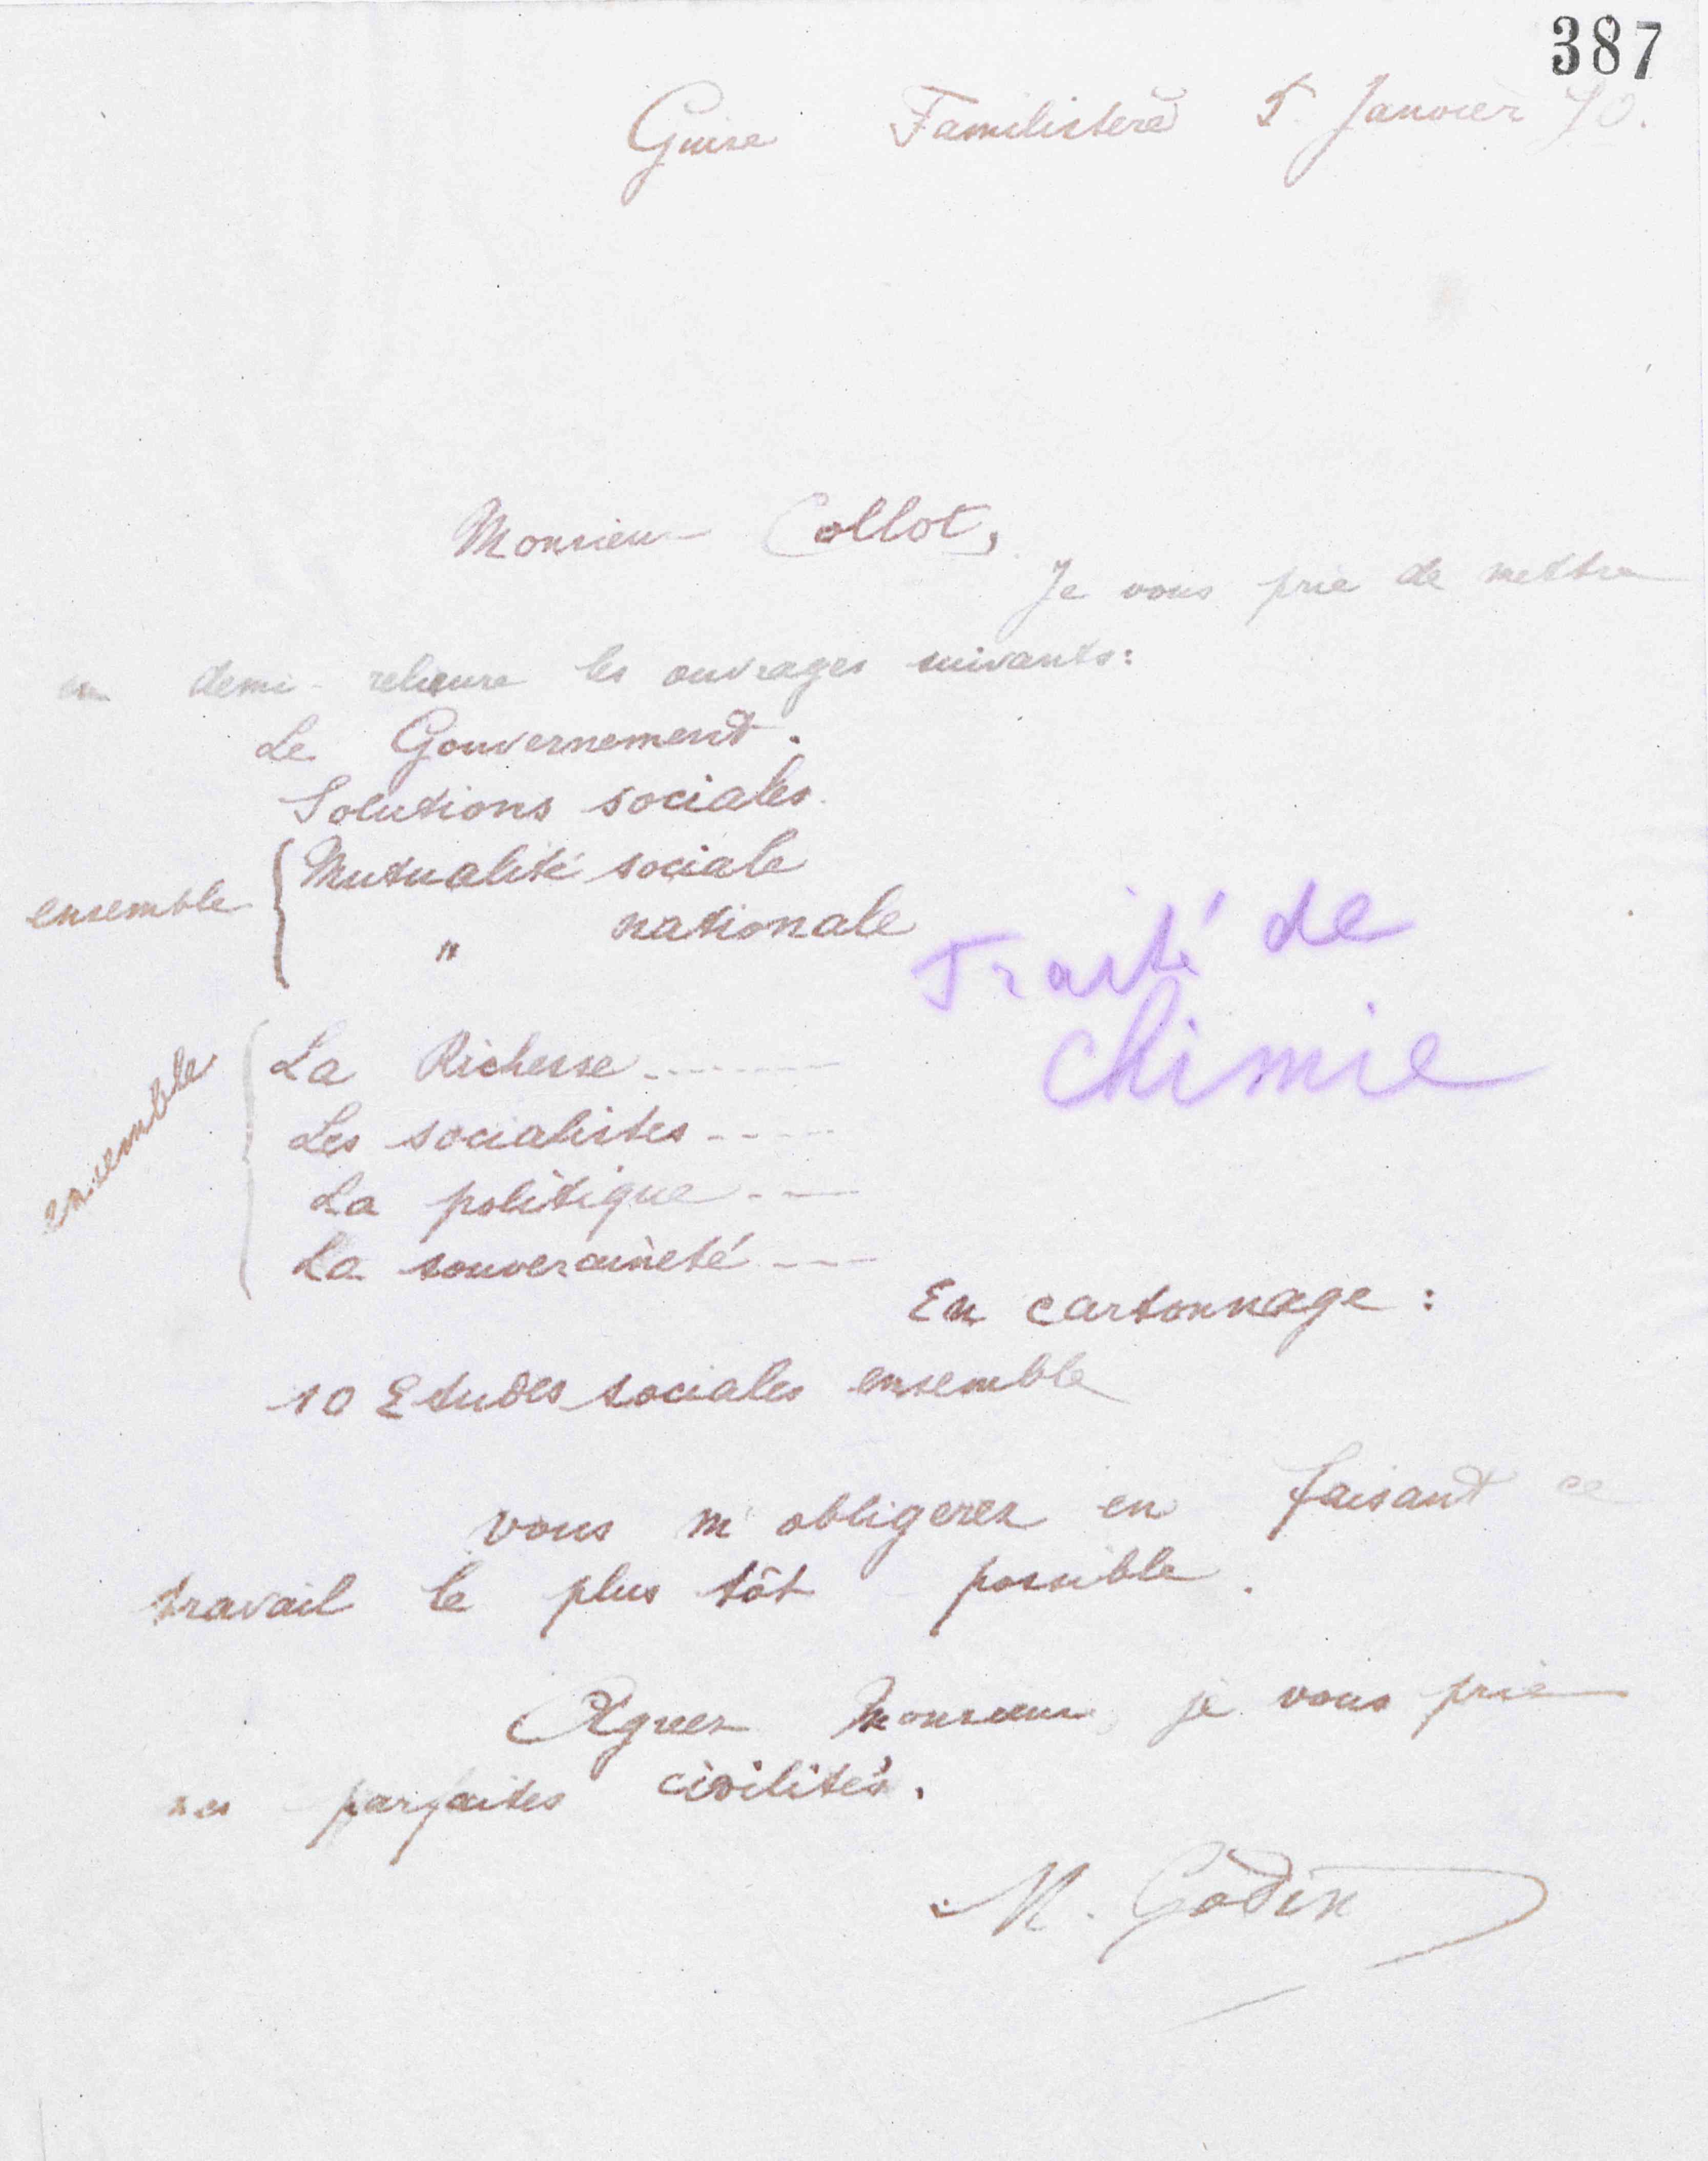 387
Guise Familistère 5 Janvier 90.
Monsieur Collot,
Je vous prie de mettre
en demi-reliure les ouvrages suivants:
Le Gouvernement.
Solutions sociales.
ensemble { Mutualité sociale
" nationale
Traité de
chimie
ensemble { La Richesse --------
Les socialistes -----
La politique ----
La souveraineté ----
En cartonnage :
10 Etudes sociales ensemble
Vous m'obligerez en faisant ce
travail le plus tôt possible.
Agréez Monsieur, je vous prie
mes parfaites civilités.
M. Godin